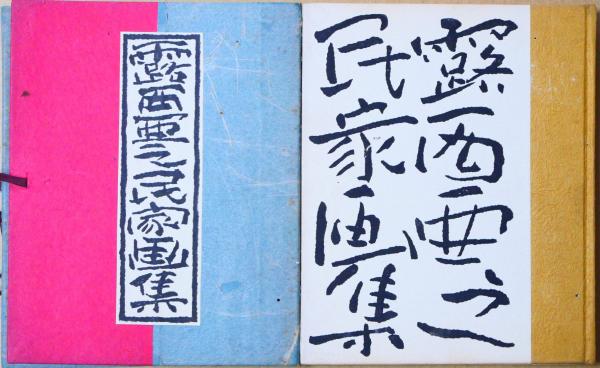 露西亜之民家画集
露西亜之
民家画集